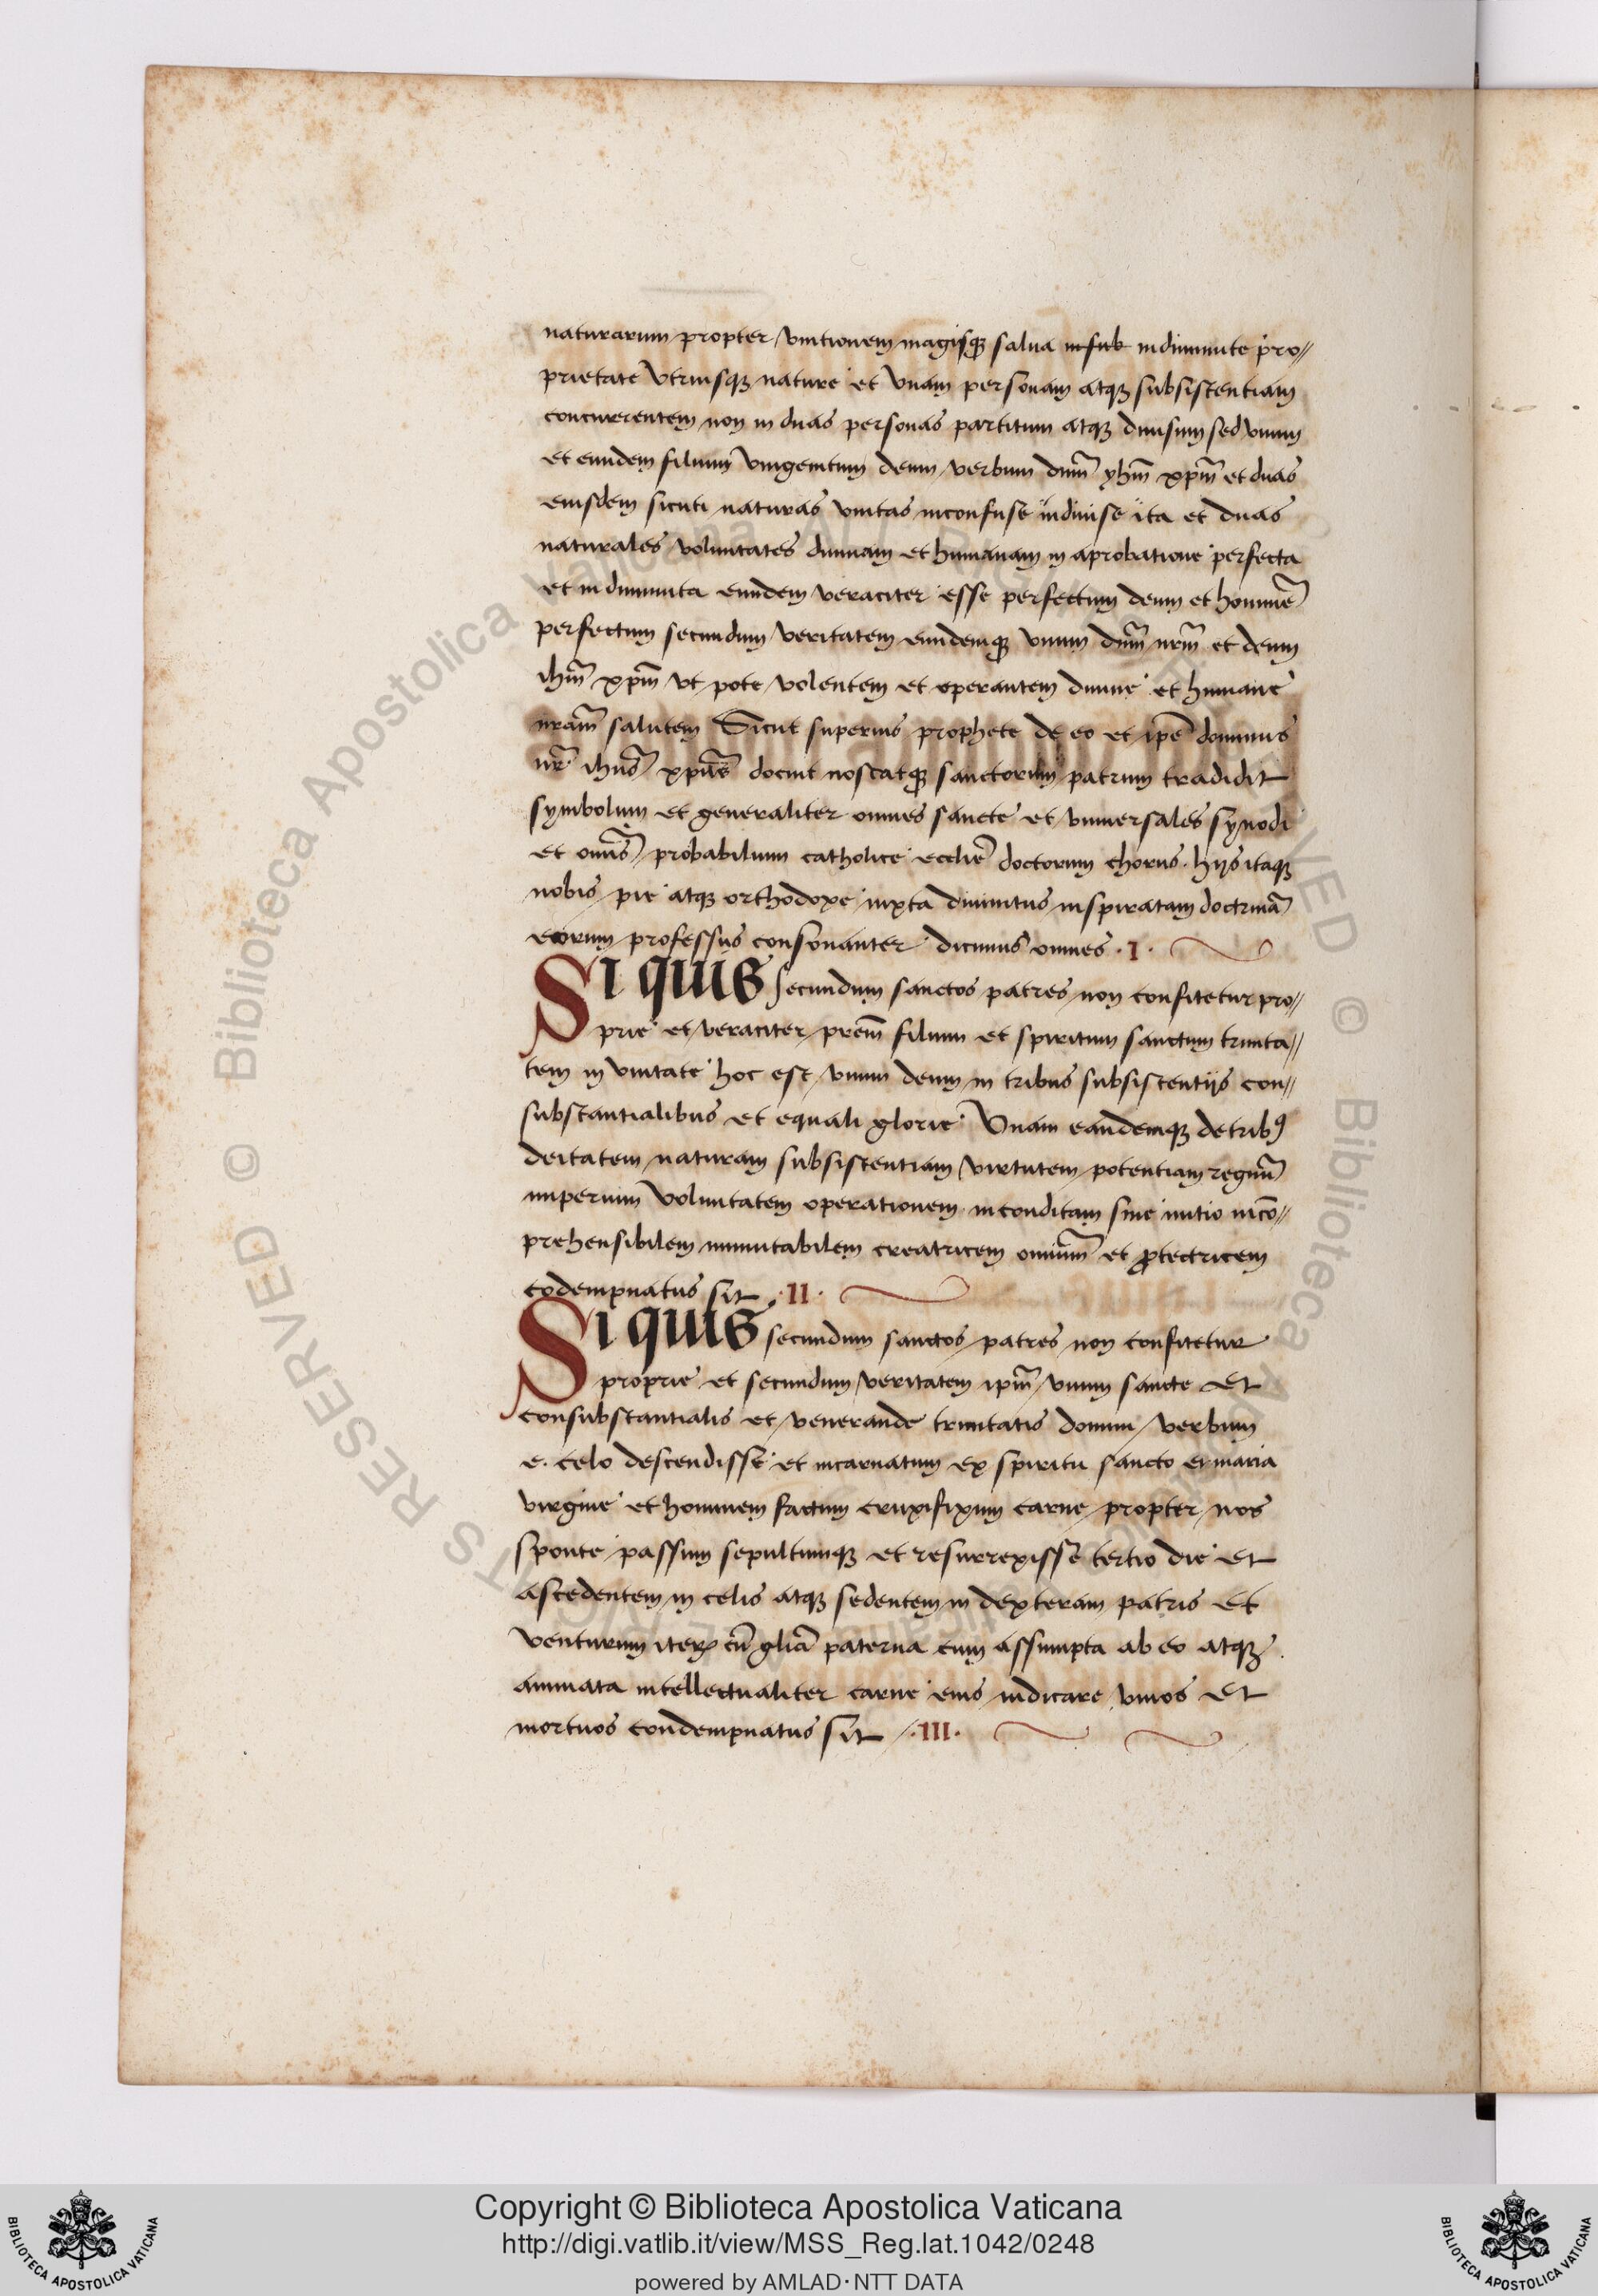 naturarum propter vnitionem magisq₃ salua in sub indiminute pro//
prietate vtriusq₃ nature et vnam personam atq₃ subsistentiam
concurrentem non in duas personas partitum atq₃ diuisum sed vnum
et eundem filium vnigenitum deum verbum dn̄m yhm̄ xpm̄ et duas
eiusdem sicuti naturas vnitas inconfuse indiuise ita et duas
naturales voluntates diuinam et humanam in aprobatione perfecta
et indiminuta eundem veraciter esse perfectum deum et hominē
perfectum secundum veritatem eundemq₃ vnum dn̄m nr̄m et deum
ihm̄ xpm̄ vt pote volentem et operantem diuine et humane
nr̄am salutem Sicut superius prophete de eo et ip̄e dominus
nr̄ ihūs xpūs docuit noscatq₃ sanctorum patrum tradidit
symbolum et generaliter omnes sancte et vniuersales synodi
et om̄is probabilium catholice eccliē doctorum chorus. hijs itaq₃
nobis pie atq₃ orthodoxe iuxta diuinitus inspiratam doctrinā
eorum professus consonanter dicimus omnes .I.
Si quis secundum sanctos patres non confitetur pro//
prie et veraciter prēm filium et spiritum sanctum trinita//
tem in vnitate hoc est vnum deum in tribus subsistentijs con//
substantialibus et equali glorie Vnam eandemq₃ de tribꝰ
deitatem naturam subsistentiam virtutem potentiam regnū
imperium voluntatem operationem inconditam sine initio incō//
prehensibilem inmutabilem creatricem omniūm et ꝓtectricem
codempnatus sit .II.
Si quis secundum sanctos patres non confitetur
proprie et secundum veritatem ipm̄ vnum sancte et
consubstantialis et venerande trinitatis domini verbum
e. celo descendisse et incarnatum ex spiritu sancto et maria
virgine et hominem factum cruxifixum carne propter nos
sponte passum sepultumq₃ et resurrexisse tertio die et
ascedentem in celis atq₃ sedentem in dexteram patris et
venturum iterꝝ cū gliā paterna cum assumpta ab eo atq₃
animata intellectualiter carne eius iudicare viuos et
mortuos condempnatus sit .III.
Copyright © Biblioteca Apostolica Vaticana
http://digi.vatlib.it/view/MSS_Reg.lat.1042/0248
powered by AMLAD·NTT DATA
BIBLIOTECA APOSTOLICA VATICANA
BIBLIOTECA APOSTOLICA VATICANA